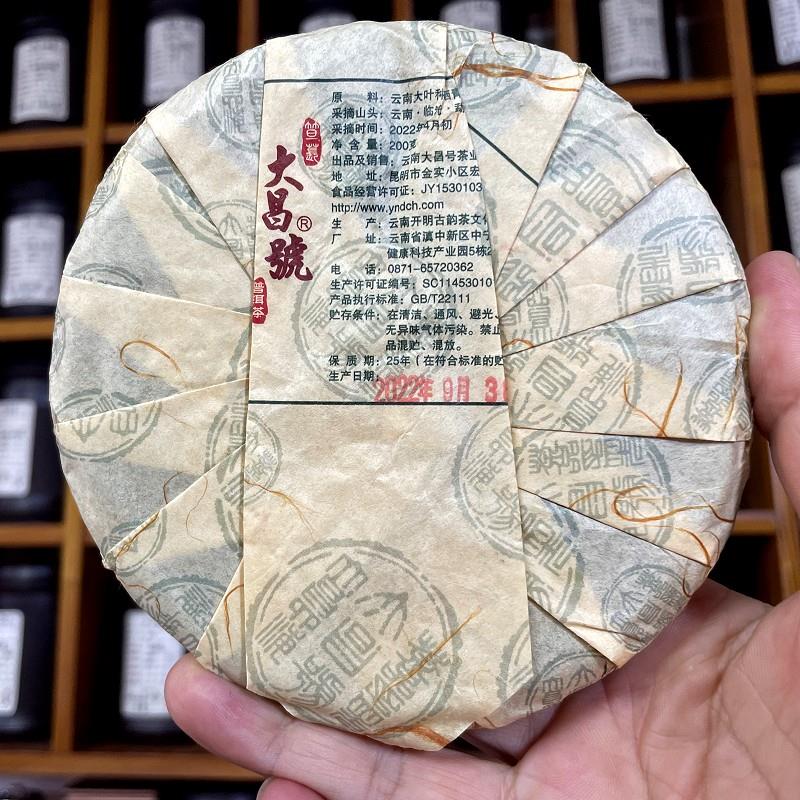 大昌號®
普洱茶
原 料：云南大叶种
采摘山头：云南·临沧·勐
采摘时间：2022年4月初
净 含 量：200克
出品及销售：云南大昌号茶业
地 址：昆明市金实小区宏
食品经营许可证：JY1530103
http://www.yndch.com
生 产：云南开明古韵茶文化
厂 址：云南省滇中新区中
健康科技产业园5栋2
电 话：0871-65720362
生产许可证编号：SC11453010
产品执行标准：GB/T22111
贮存条件：在清洁、通风、避光、
无异味气体污染。禁止
品混贮、混放。
保 质 期：25年（在符合标准的贮
生产日期：
2022年 9月 3